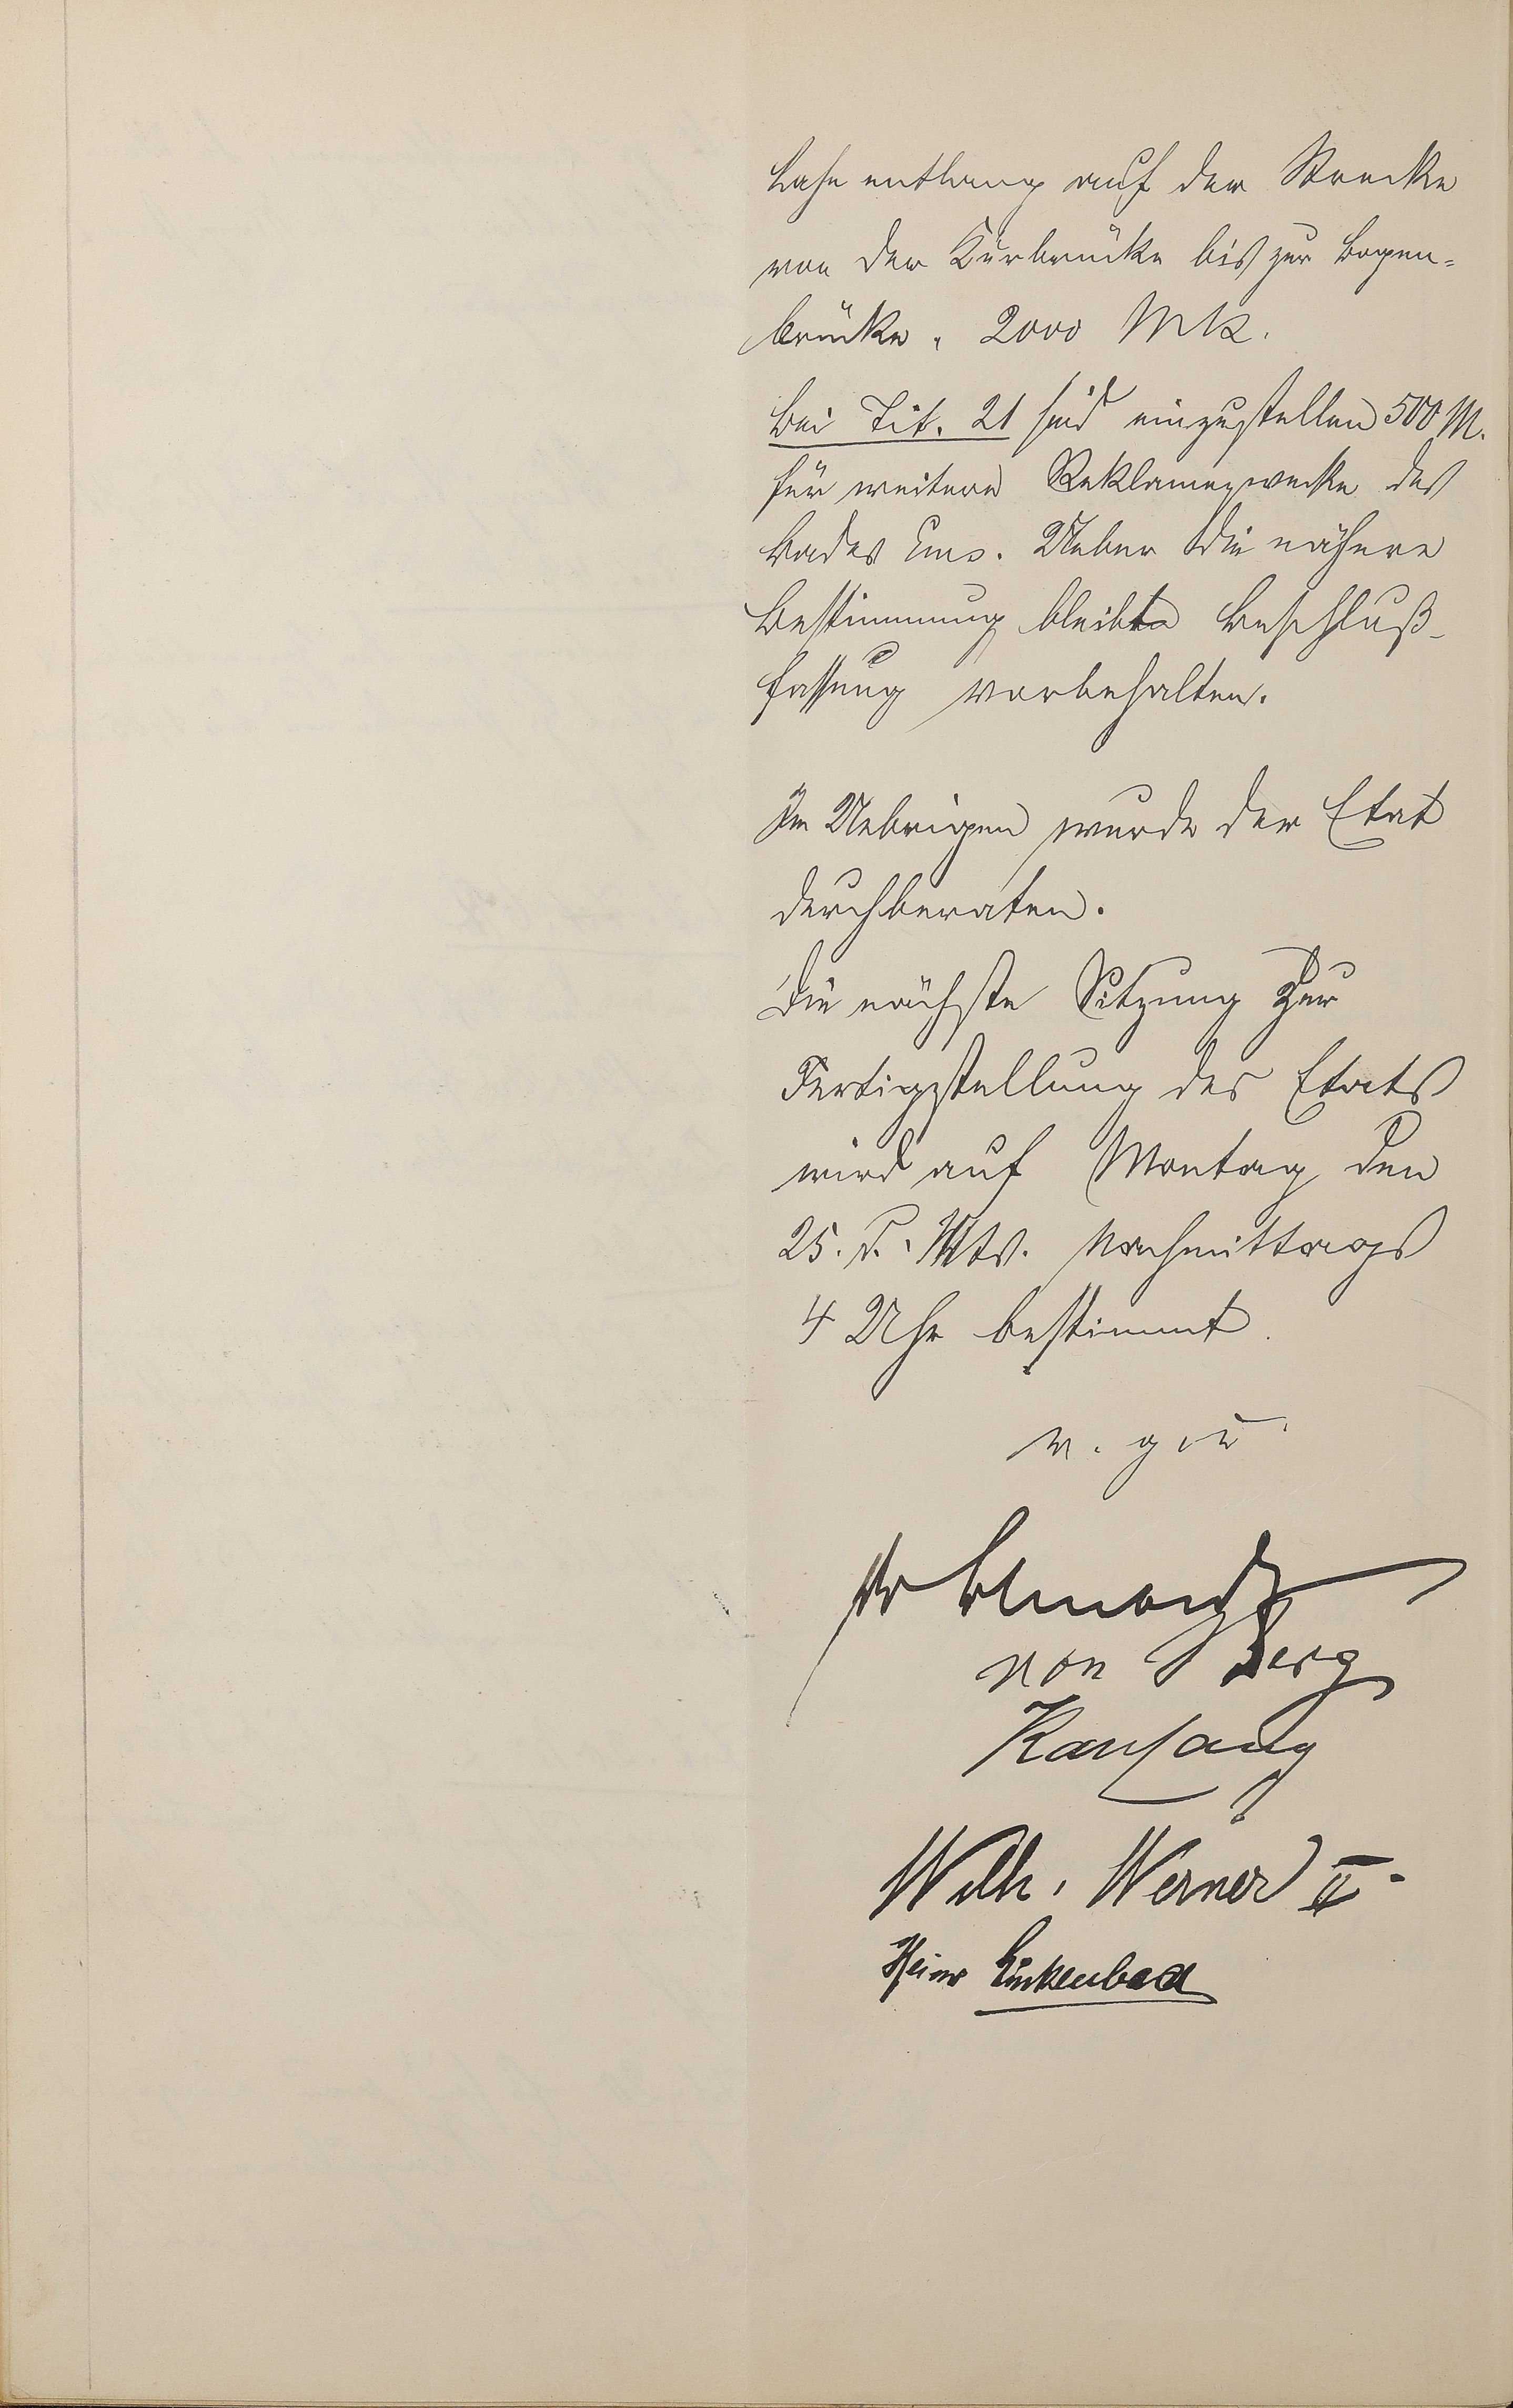 Lahn entlang auf der Strecke
von der Kurbrücke bis zur Bogen=
brücke, 2000 Mk.
Bei Tit. 21 sind einzustellen 500 M.
für weitere Reklamezwecke des
Bades Ems. Ueber die nähere
Bestimmung bleibt Beschluß-
fassung vorbehalten.
Im Uebrigen wurde der Etat
durchberaten.
Die nächste Sitzung zur
Fertigstellung des Etats
wird auf Montag den
25. d. Mts. Nachmittags
4 Uhr bestimmt.
v. g. u.
Dr
von Berg
Wilh. Werner II.
Heinr Linkenbach